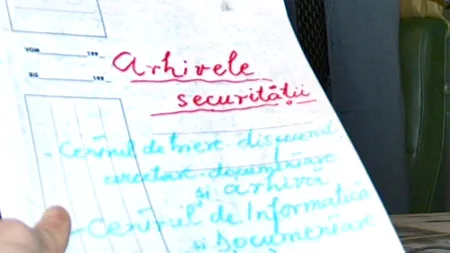 VGM 199
Arhivele
BIS 199
securității
- Centrul de
cercetare documentare
și arhivă
- Centrul de Informatică
și Documentare